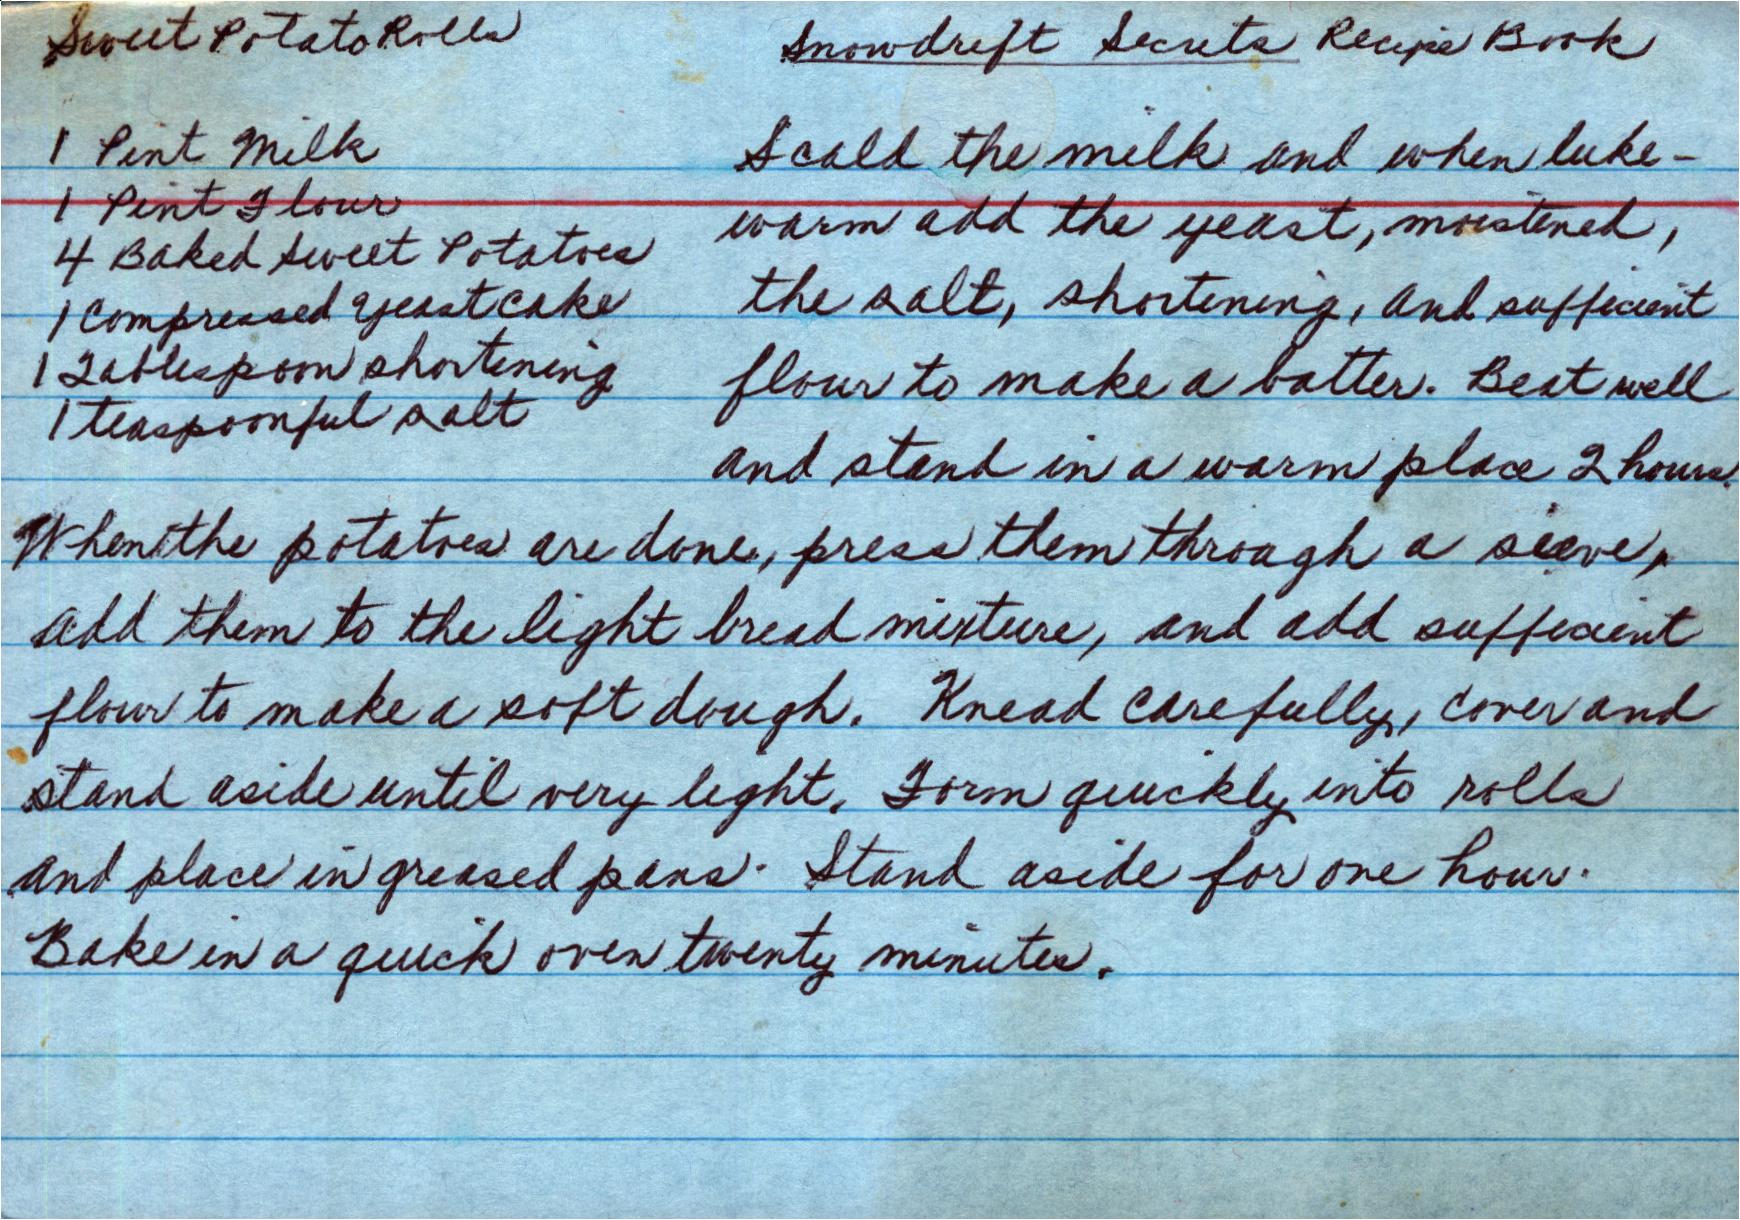 Sweet Potato Rolls
Snowdrift Secrets Recipe Book
1 Pint Milk
1 Pint Flour
4 Baked Sweet Potatoes
1 Compressed Yeast cake
1 Tablespoon shortening
1 teaspoonful salt
Scald the milk and when luke-
warm add the yeast, moistened,
the salt, shortening, and sufficient
flour to make a batter. Beat well
and stand in a warm place 2 hours.
When the potatoes are done, press them through a sieve,
add them to the light bread mixture, and add sufficient
flour to make a soft dough. Knead carefully, cover and
stand aside until very light. Form quickly into rolls
and place in greased pans. Stand aside for one hour.
Bake in a quick oven twenty minutes.